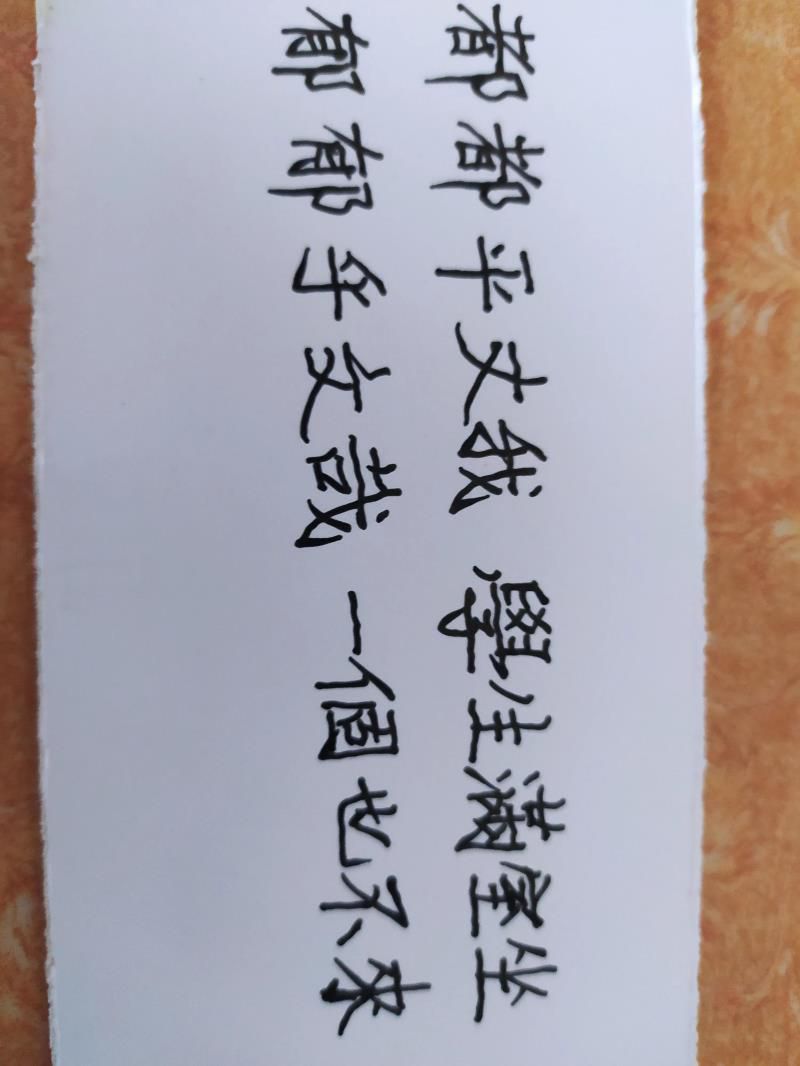 都都平丈我 學生滿堂坐
郁郁乎文哉 一個也不來